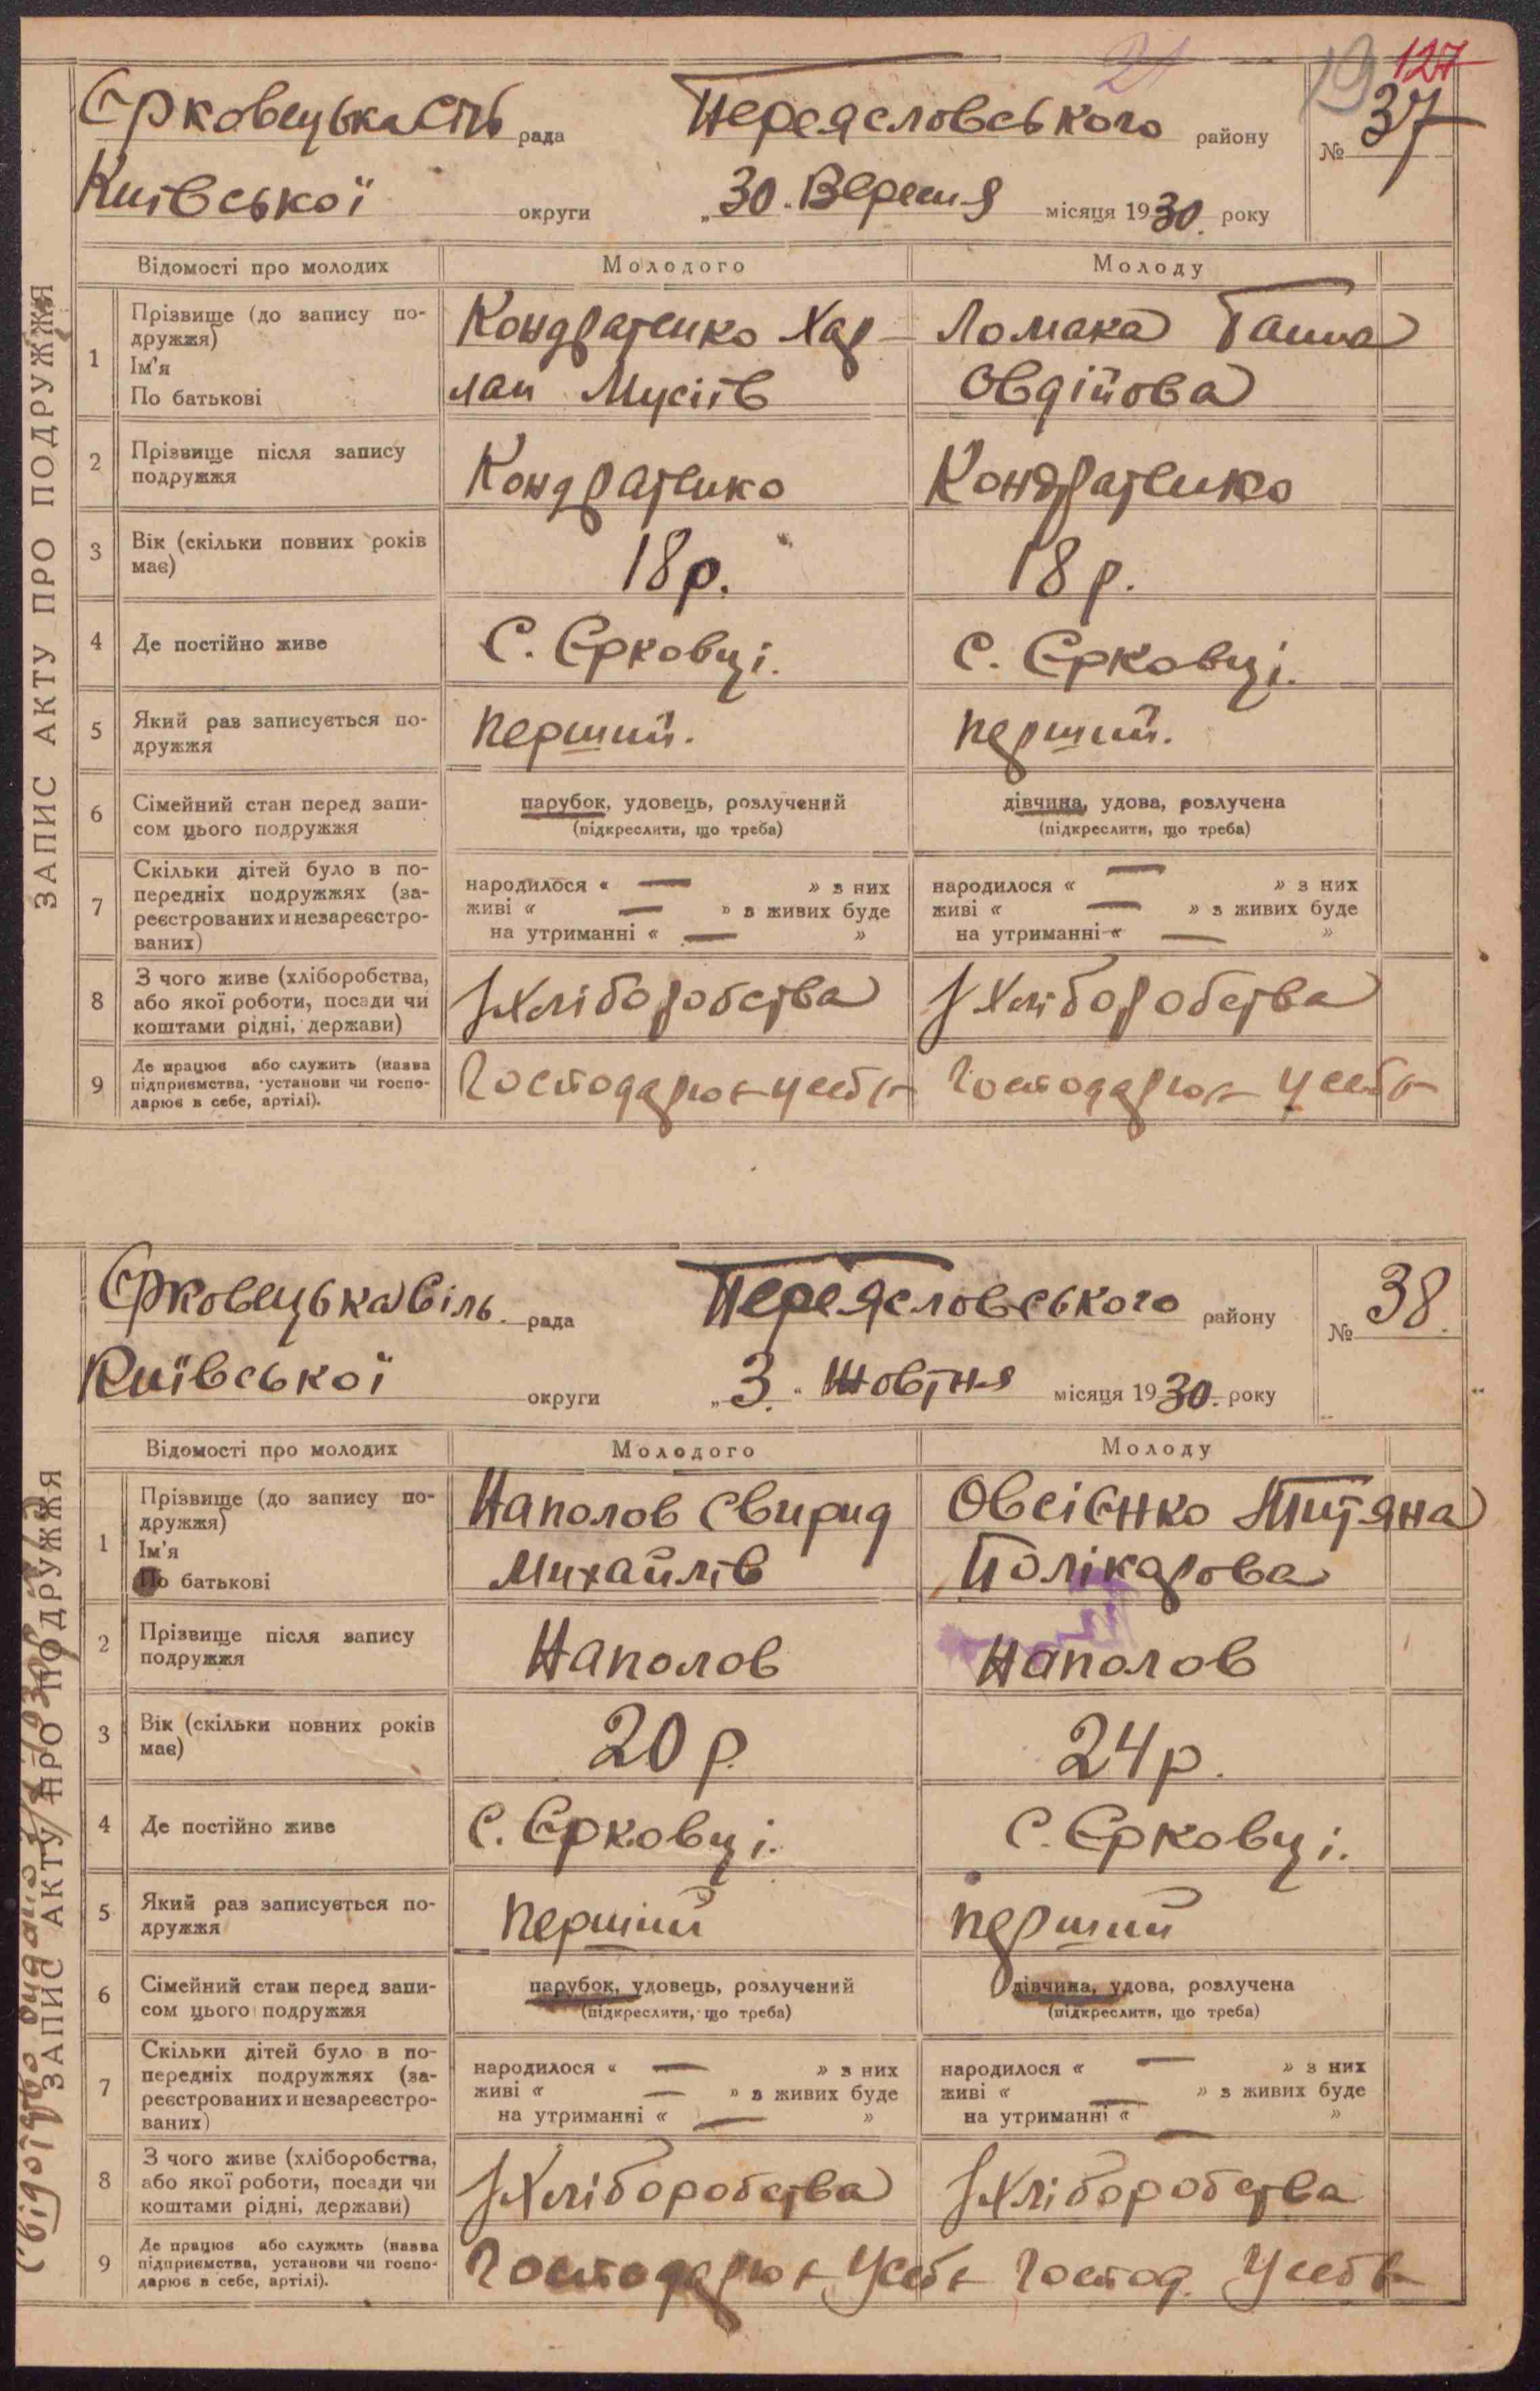 127
19
21
Єрковецька Сіль рада Переясловського району № 37
Київської округи „30" Вересня місяця 1930 року
ЗАПИС АКТУ ПРО ПОДРУЖЖЯ
Відомості про молодих Молодого Молоду
1 Прізвище (до запису подружжя) Ім'я По батькові
Кондратенко Хар-
лан Мусіїв
Ломака Ганна
Овдійова
2 Прізвище після запису подружжя Кондратенко Кондратенко
3 Вік (скільки повних років має) 18 р. 18 р.
4 Де постійно живе С. Єрковці. С. Єрковці.
5 Який раз записується подружжя Перший. Перший.
6 Сімейний стан перед записом цього подружжя
парубок, удовець, розлучений
(підкреслити, що треба)
дівчина, удова, розлучена
(підкреслити, що треба)
7 Скільки дітей було в попередніх подружжях (зареєстрованих и незареєстрованих)
народилося « — » з них
живі « — » з живих буде
на утриманні « — »
народилося « — » з них
живі « — » з живих буде
на утриманні « — »
8 З чого живе (хліборобства, або якої роботи, посади чи коштами рідні, держави) З Хліборобства З Хліборобства
9 Де працює або служить (назва підприємства, установи чи господарює в себе, артілі). Господарює у себе Господарює у себе
Єрковецька Сіль. рада Переясловського району № 38.
Київської округи „3." Жовтня місяця 1930. року
ЗАПИС АКТУ ПРО ПОДРУЖЖЯ
Відомості про молодих Молодого Молоду
1 Прізвище (до запису подружжя) Ім'я По батькові
Наполов Свирид
Михайлів
Овсієнко Титяна
Полікарова
2 Прізвище після запису подружжя Наполов Наполов
3 Вік (скільки повних років має) 20 р. 24 р.
4 Де постійно живе С. Єрковці. С. Єрковці.
5 Який раз записується подружжя Перший Перший
6 Сімейний стан перед записом цього подружжя
парубок, удовець, розлучений
(підкреслити, що треба)
дівчина, удова, розлучена
(підкреслити, що треба)
7 Скільки дітей було в попередніх подружжях (зареєстрованих и незареєстрованих)
народилося « — » з них
живі « — » з живих буде
на утриманні « — »
народилося « — » з них
живі « — » з живих буде
на утриманні « — »
8 З чого живе (хліборобства, або якої роботи, посади чи коштами рідні, держави) З Хліборобства З Хліборобства
9 Де працює або служить (назва підприємства, установи чи господарює в себе, артілі). Господарює у себе Господ. у себе